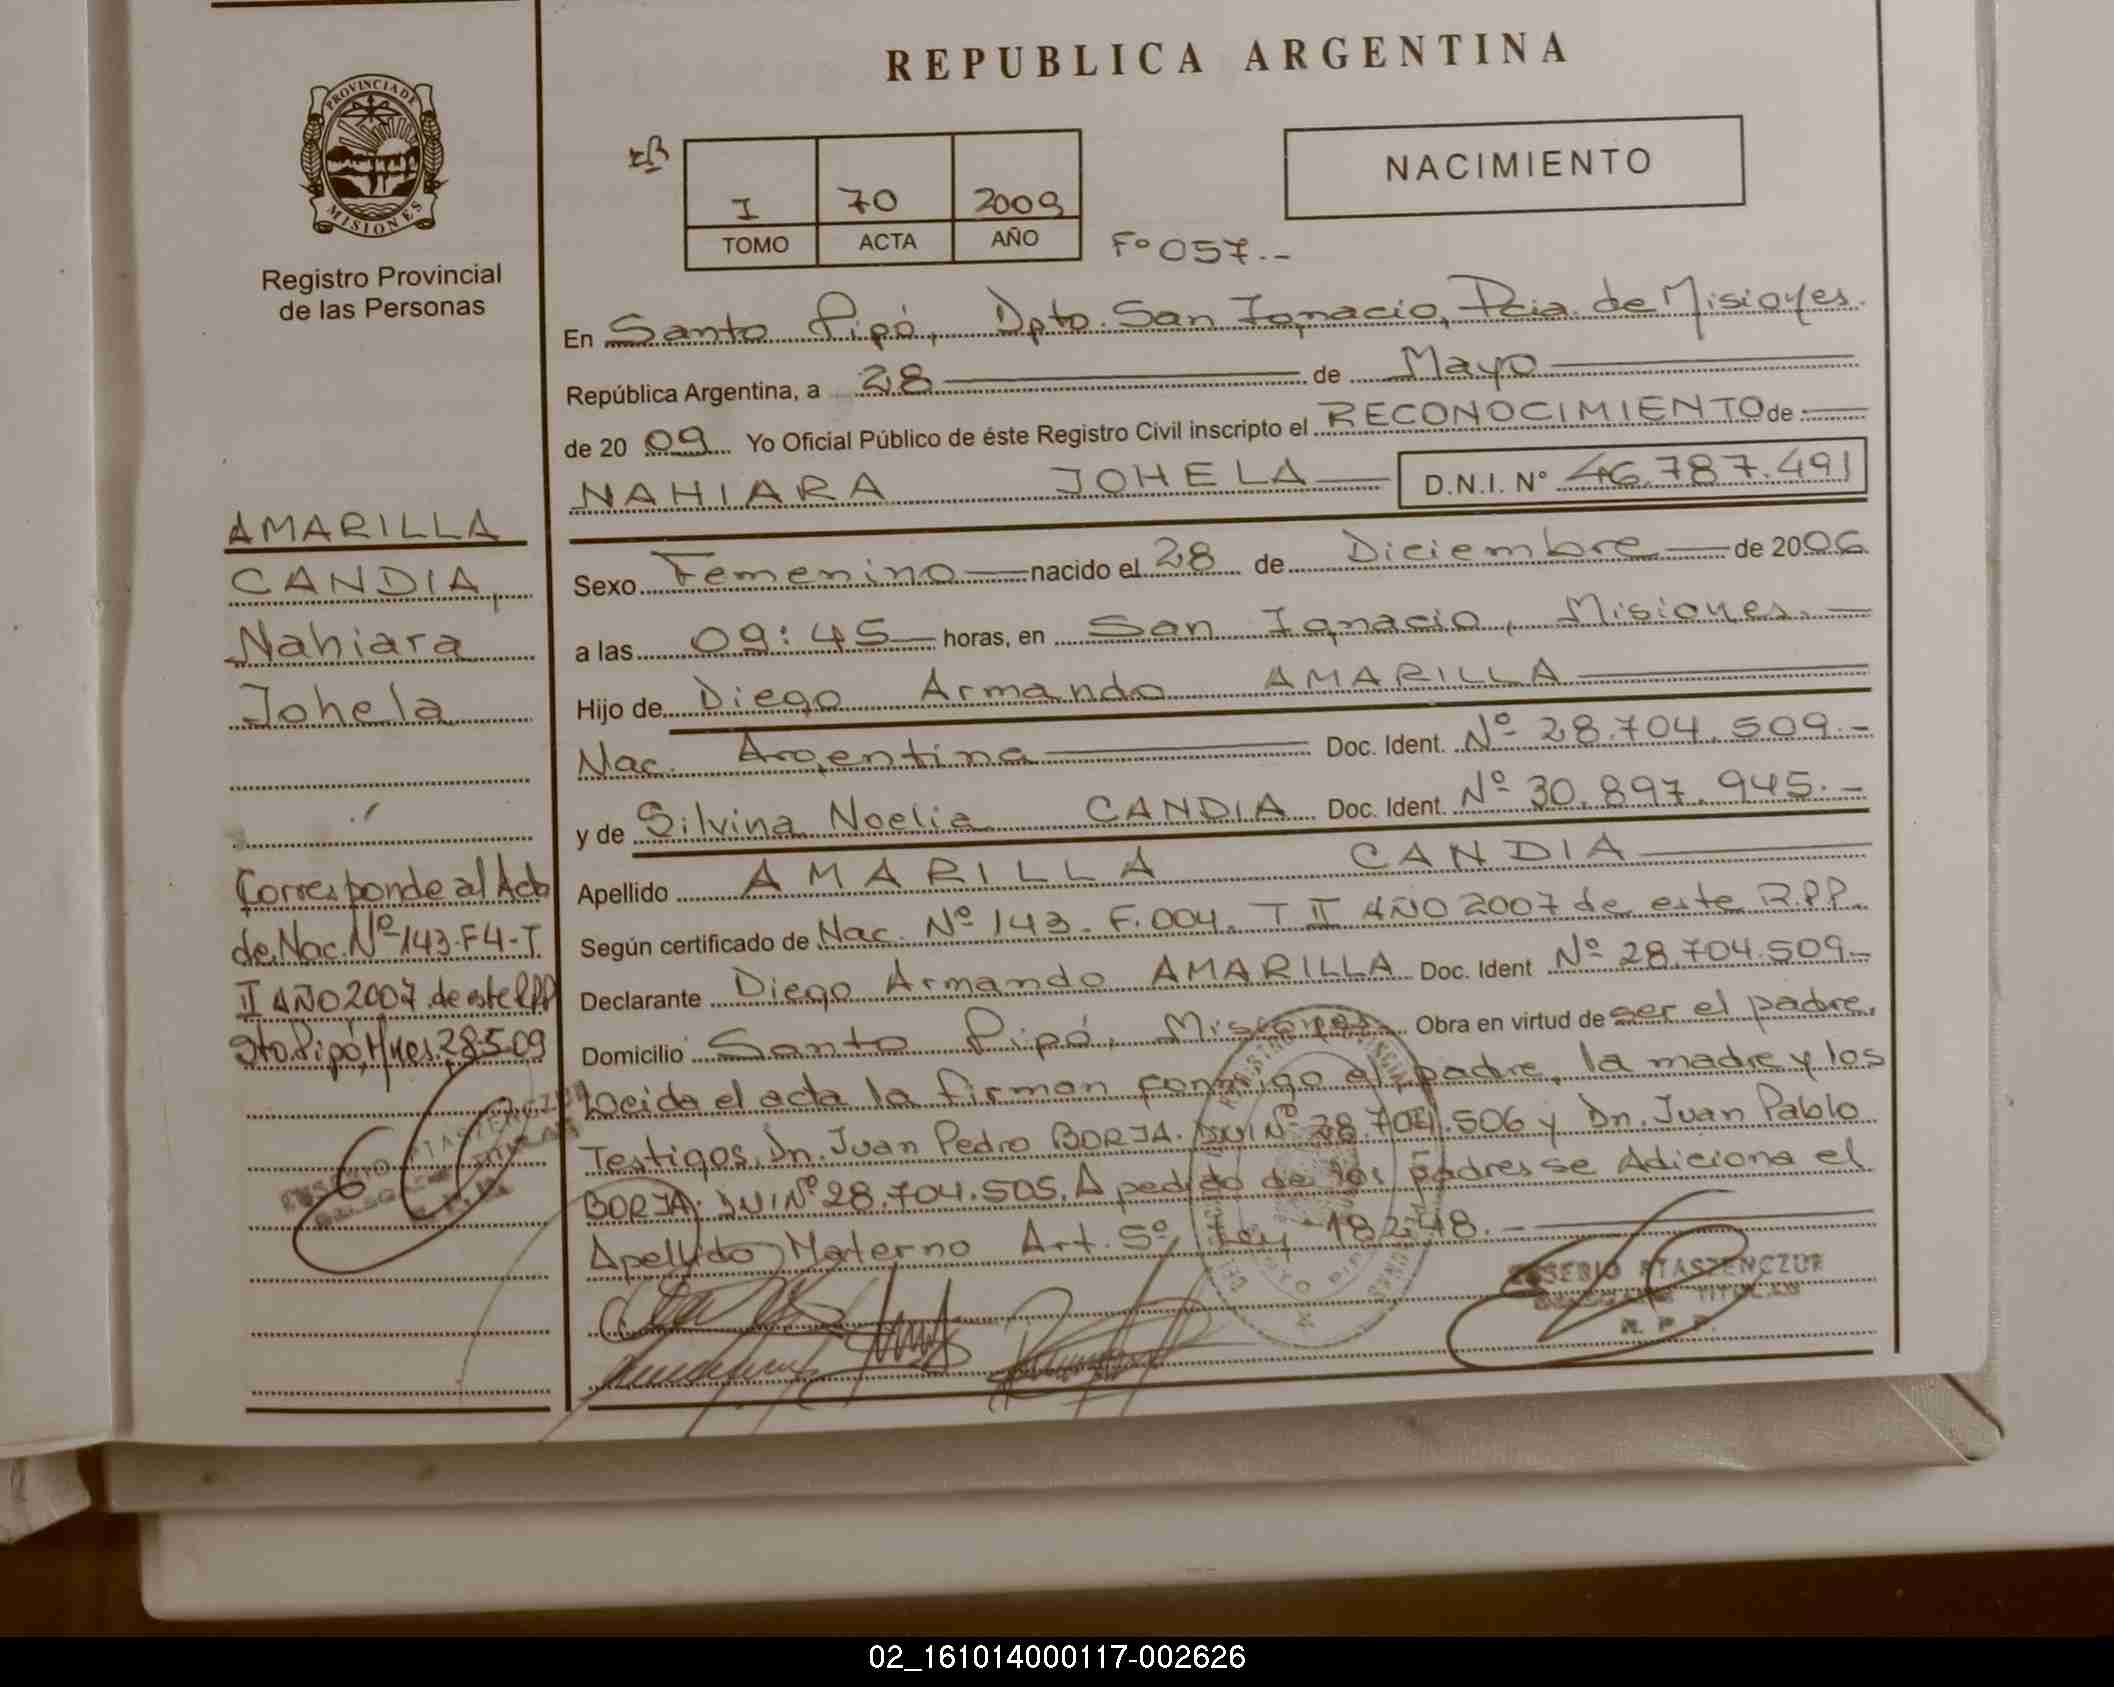 REPUBLICA ARGENTINA
PROVINCIA DE
MISIONES
Registro Provincial
de las Personas
NACIMIENTO
I 70 2009
TOMO ACTA AÑO
Fº 057.-
En Santo Pipó, Dpto. San Ignacio, Pcia. de Misiones.
República Argentina, a 28 de Mayo
de 2009 Yo Oficial Público de éste Registro Civil inscripto el RECONOCIMIENTO de
NAHIARA JOHELA D.N.I. Nº 46.787.491
Sexo Femenino nacido el 28 de Diciembre de 2006
a las 09:45 horas, en San Ignacio, Misiones.
Hijo de Diego Armando AMARILLA
Nac. Argentina Doc. Ident. Nº 28.704.509.-
y de Silvina Noelia CANDIA Doc. Ident. Nº 30.897.945.-
Apellido AMARILLA CANDIA
Según certificado de Nac. Nº 143. F.004. T II AÑO 2007 de este R.P.P.
Declarante Diego Armando AMARILLA Doc. Ident Nº 28.704.509-
Domicilio Santo Pipó, Misiones Obra en virtud de ser el padre,
Leida el acta la firman conmigo el padre, la madre y los
Testigos, Dn. Juan Pedro BORJA. DNI Nº 28.704.506 y Dn. Juan Pablo
BORJA: DNI Nº 28.704.505. A pedido de los padres se Adiciona el
Apellido Materno Art. 5º Ley 18248.-
EUSEBIO PTASZENCZUK
DELEGADO TITULAR
R. P. P.
AMARILLA
CANDIA,
Nahiara
Johela
Corresponde al Acta
de Nac. Nº 143-F4-T.
II AÑO 2007 de este RPP
Sto. Pipó, Mnes. 28-5-09
EUSEBIO PTASZENCZUK
DELEGADO TITULAR
R. P. P.
02_161014000117-002626